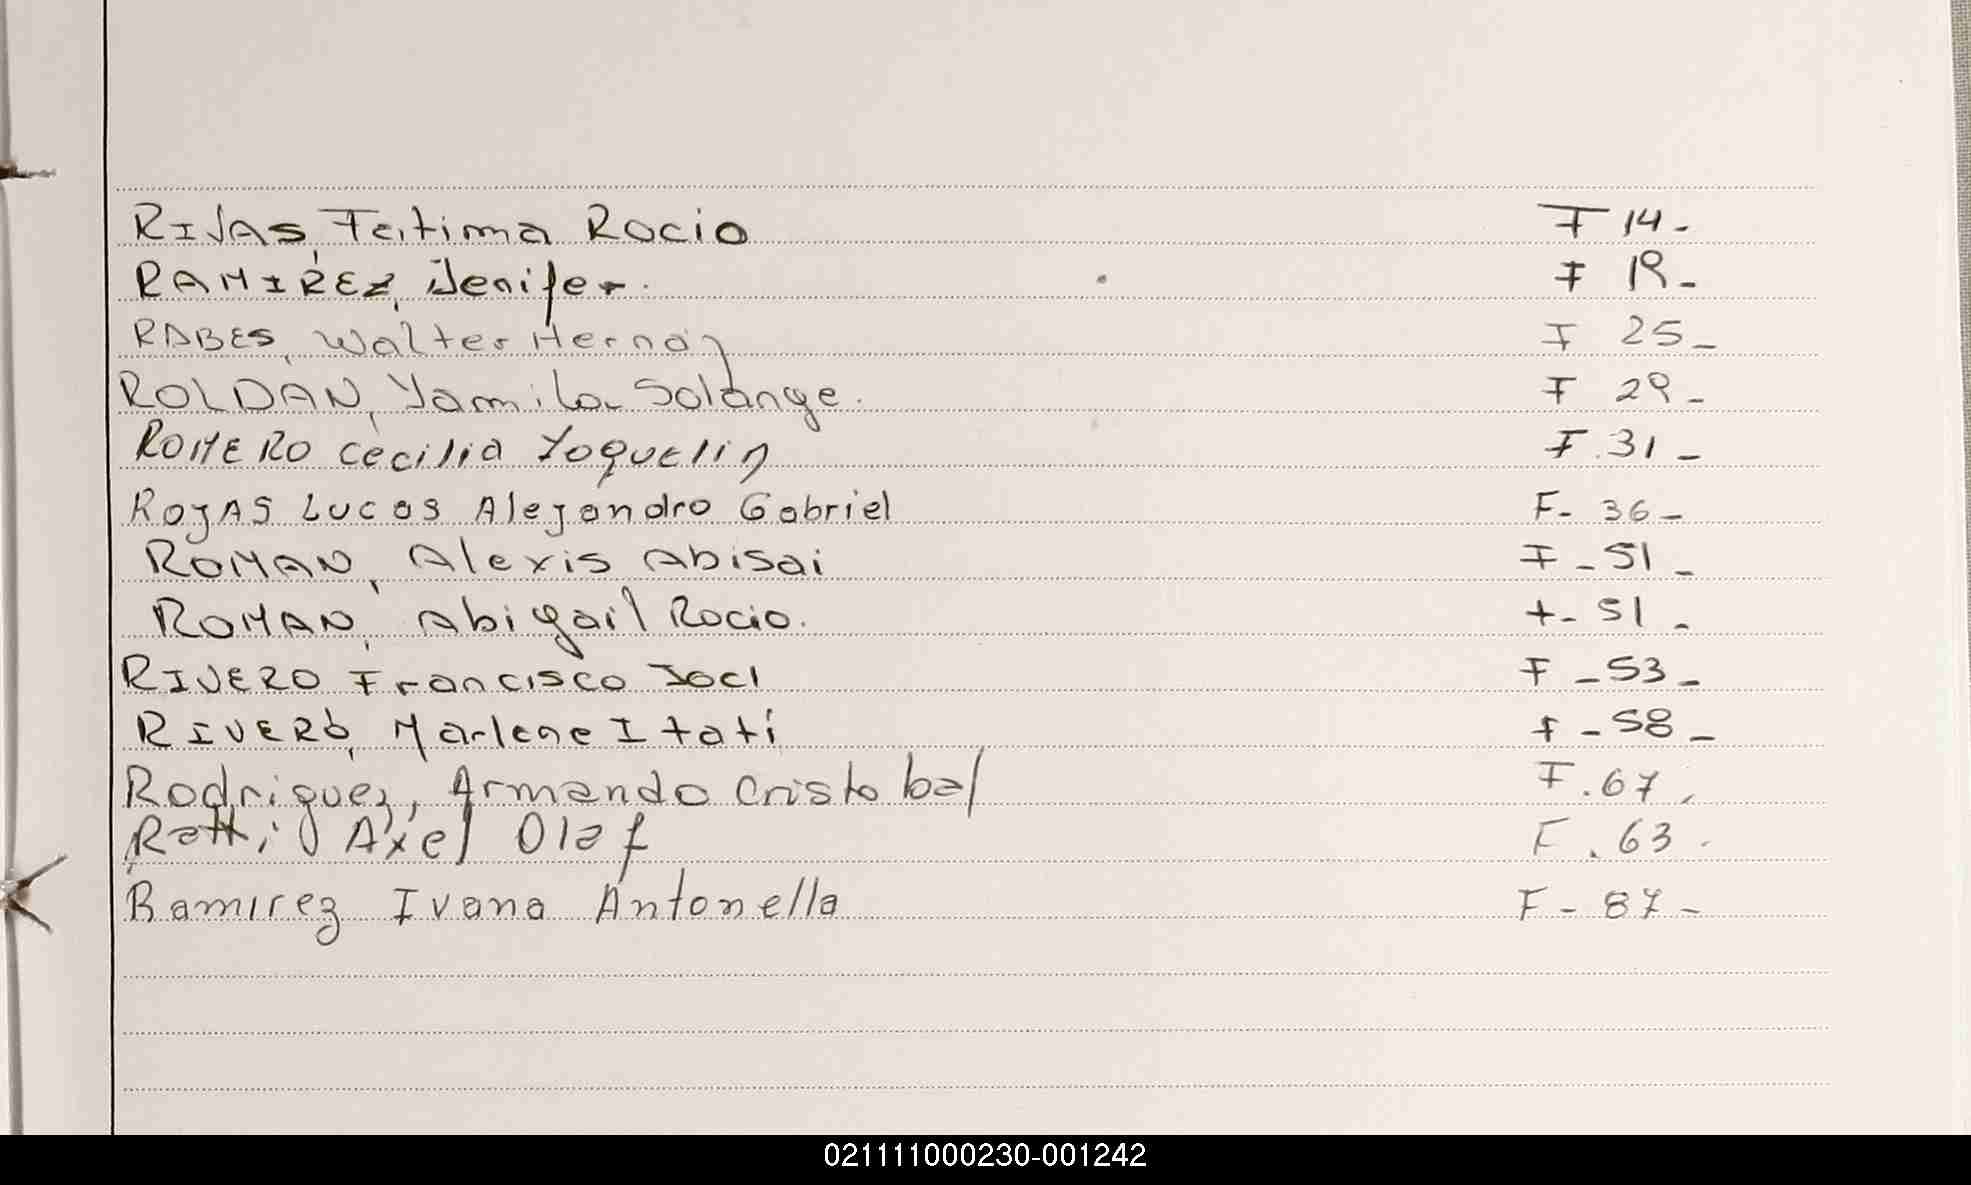 RIVAS, Fatima Rocio F 14-
RAMIREZ, Jenifer. F 19-
RABES, Walter Hernan F 25-
ROLDAN, Yamila Solange. F 29-
ROMERO Cecilia Yoquelin F.31-
ROJAS Lucas Alejandro Gabriel F- 36-
ROMAN, Alexis Abisai F-51-
ROMAN, Abigail Rocio. F-51-
RIVERO Francisco Joel F-53-
RIVERO, Marlene Itati F-58-
Rodriguez, Armando Cristobal F.67.
Ratti, Axel Olaf F.63.
Ramirez Ivana Antonella F-87-
021111000230-001242